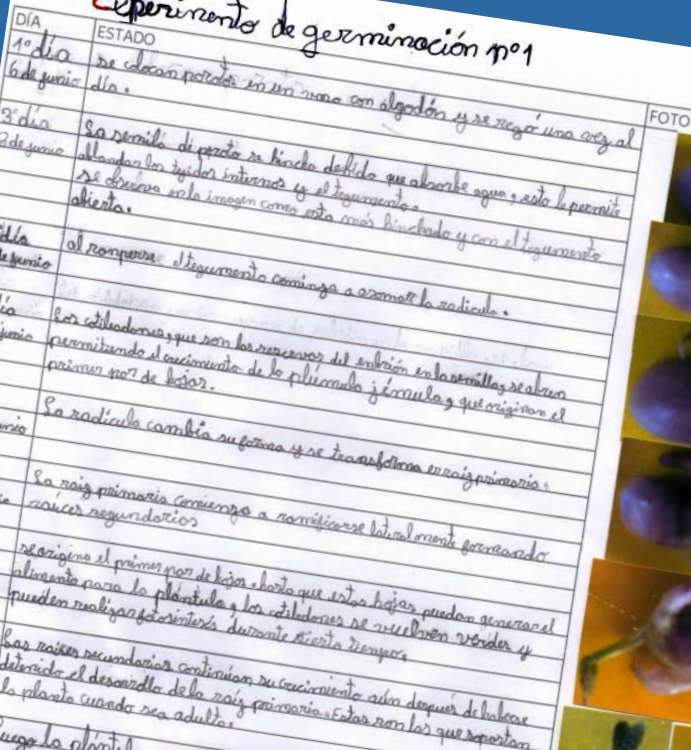 Experimento de germinación nº1
DÍA ESTADO FOTO
1º día se colocan porotos en un vaso con algodón y se regó una vez al
6 de junio día.
3º día La semilla di poroto se hincha debido que absorbe agua, esto le permite
de junio ablandar los tejidos internos y el tegumento.
se observa en la imagen como esta más hinchado y con el tegumento
abierta.
día al romperse el tegumento comienza a asomar la radicula.
de junio
día Los cotiledones, que son las reservas del embrión en la semilla, se abren
junio permitiendo el crecimiento de la plúmula jémula, que originan el
primer par de hojas.
La radícula cambia su forma y se transforma en raiz primaria.
junio
La raiz primaria comienza a ramificarse lateralmente formando
raíces segundarios
se origina el primer par de hojas. hasta que estas hojas puedan generar el
alimento para la plántula, los cotiledones se vuelven verdes y
pueden realizar fotosintesis durante cierto tiempo.
Las raices secundarias continúan su crecimiento aún después de haberse
detenido el desarrollo de la raíz primaria. Estas son las que soportan
la planeta cuando sea adulta.
Luego la plántul